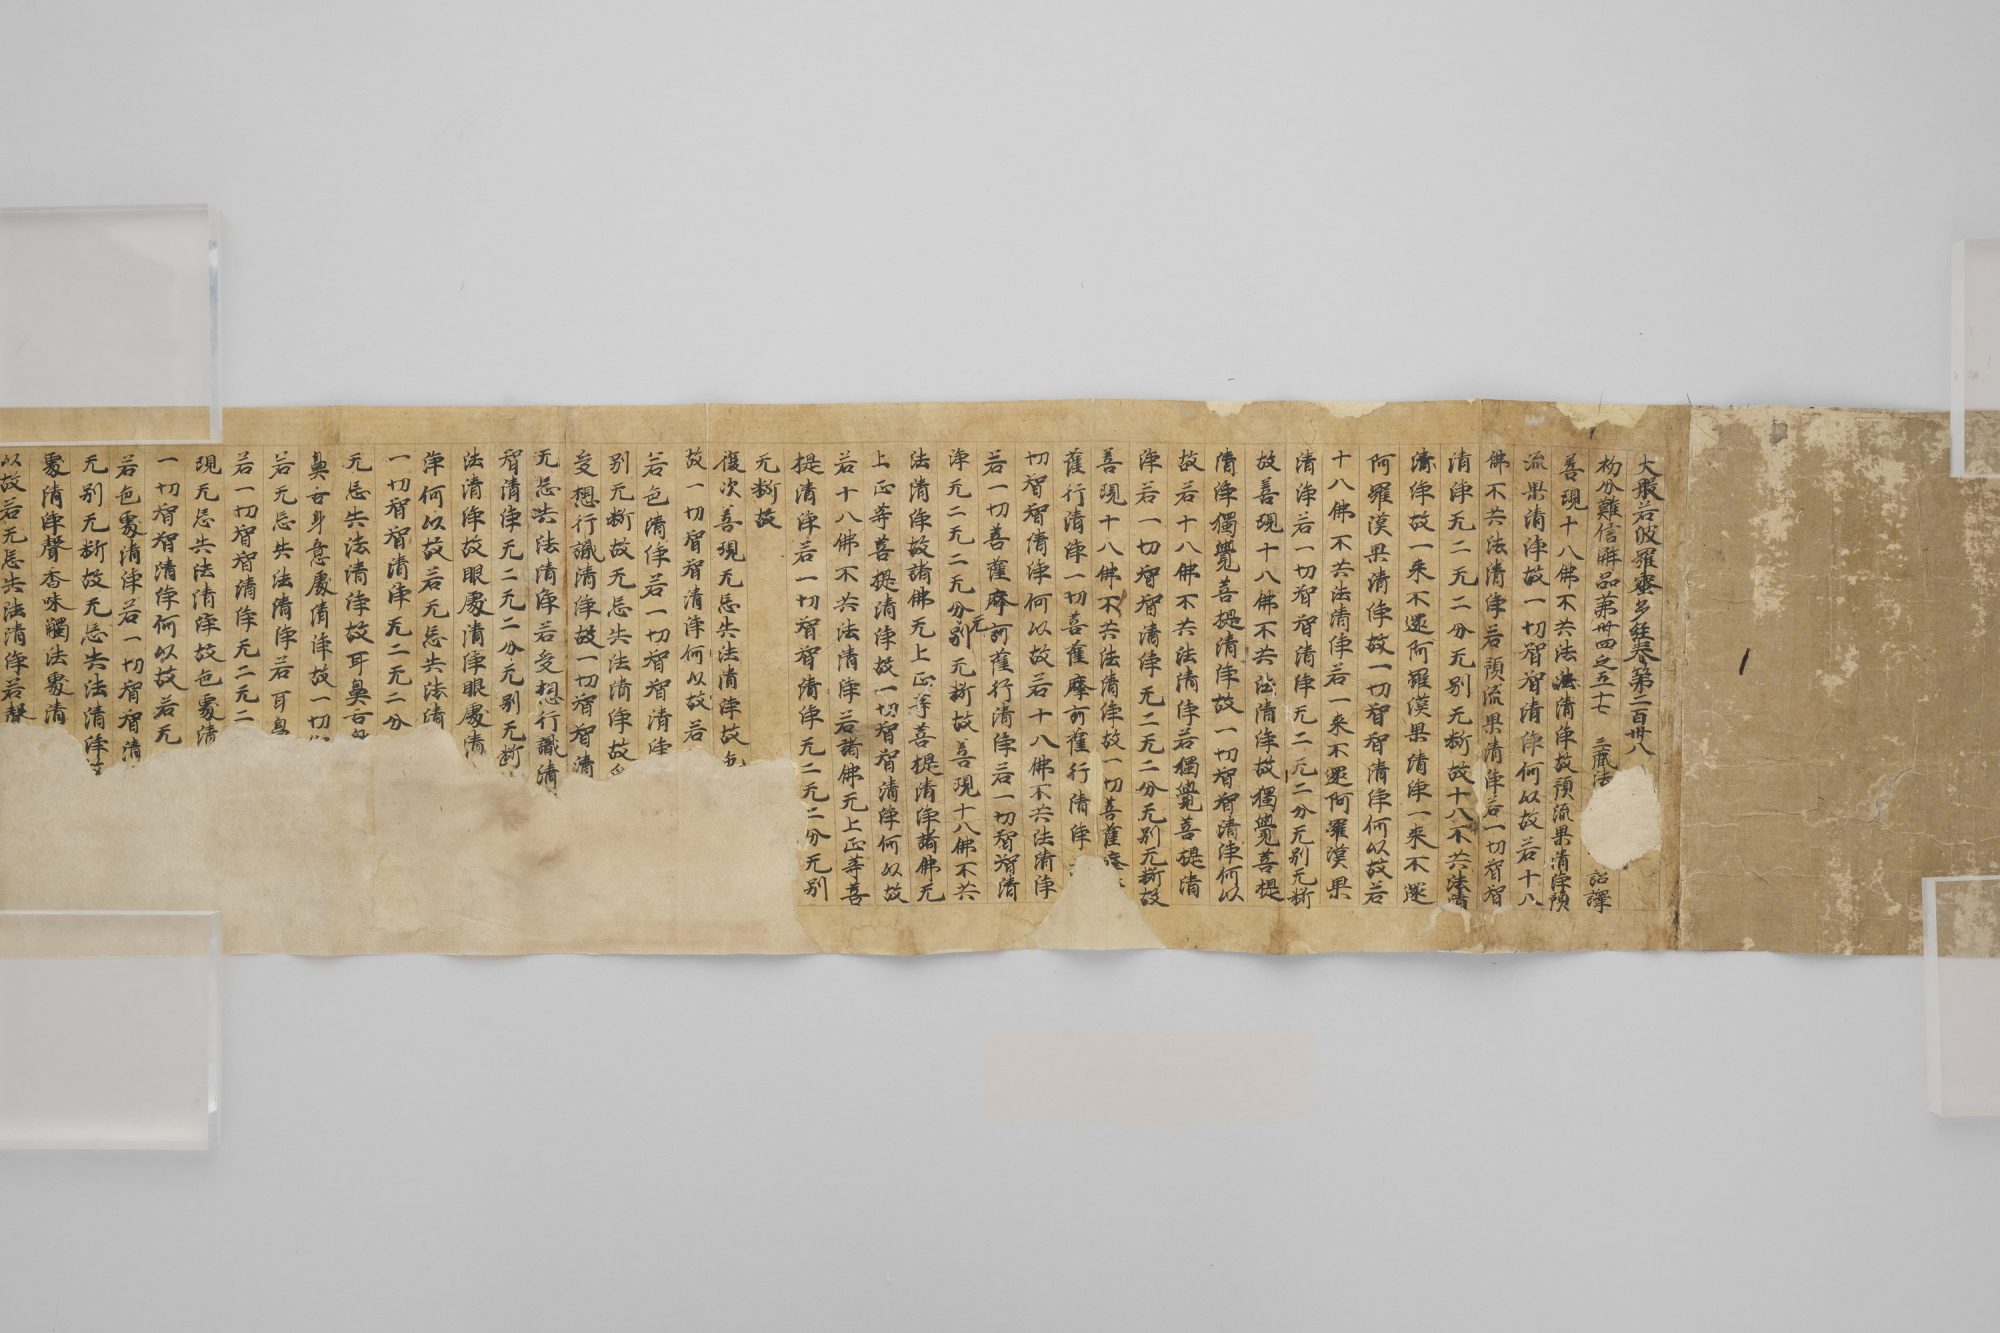 大般若波羅蜜多経卷第二百卅八
初分難信解品第卅四之五十七 三藏法 詔譯
善現十八佛不共法清淨故預流果清淨預
流果清淨故一切智智清淨何以故若十八
佛不共法清淨若預流果清淨若一切智智
清淨无二无二分无別无断故十八不共法清
淨故一来不還阿羅漢果清淨一来不還
阿羅漢果清淨故一切智智清淨何以故若
十八佛不共法清淨若一来不還阿羅漢果
清淨若一切智智清淨无二无二分无別无断
故善現十八佛不共法清淨故獨覺菩提
清淨獨覺菩提清淨故一切智智清淨何以
故若十八佛不共法清淨若獨覺菩提清
淨若一切智智清淨无二无二分无別无断故
善現十八佛不共法清淨故一切菩薩摩
薩行清淨一切菩薩摩訶薩行清淨
切智智清淨何以故若十八佛不共法清淨
若一切菩薩摩訶薩行清淨若一切智智清
淨无二无二无分別无断故善現十八佛不共
法清淨故諸佛无上正等菩提清淨諸佛无
上正等菩提清淨故一切智智清淨何以故
若十八佛不共法清淨若諸佛无上正等菩
提清淨若一切智智清淨无二无二分无別
无断故
復次善現无忘失法清淨故色
故一切智智清淨何以故若
若色清淨若一切智智清淨
別无断故无忘失法清淨故受
受想行識清淨故一切智智清
无忘失法清淨若受想行識清
智清淨无二无二分无別无断
法清淨故眼處清淨眼處清
淨何以故若无忘失法清
一切智智清淨无二无二分
无忘失法清淨故耳鼻舌身
鼻舌身意處清淨故一切
若无忘失法清淨若耳鼻
若一切智智清淨无二无二
現无忘失法清淨故色處清
一切智智清淨何以故若无
若色處清淨若一切智智清
无別无断故无忘失法清淨
處清淨聲香味觸法處清
以故若无忘失法清淨若聲